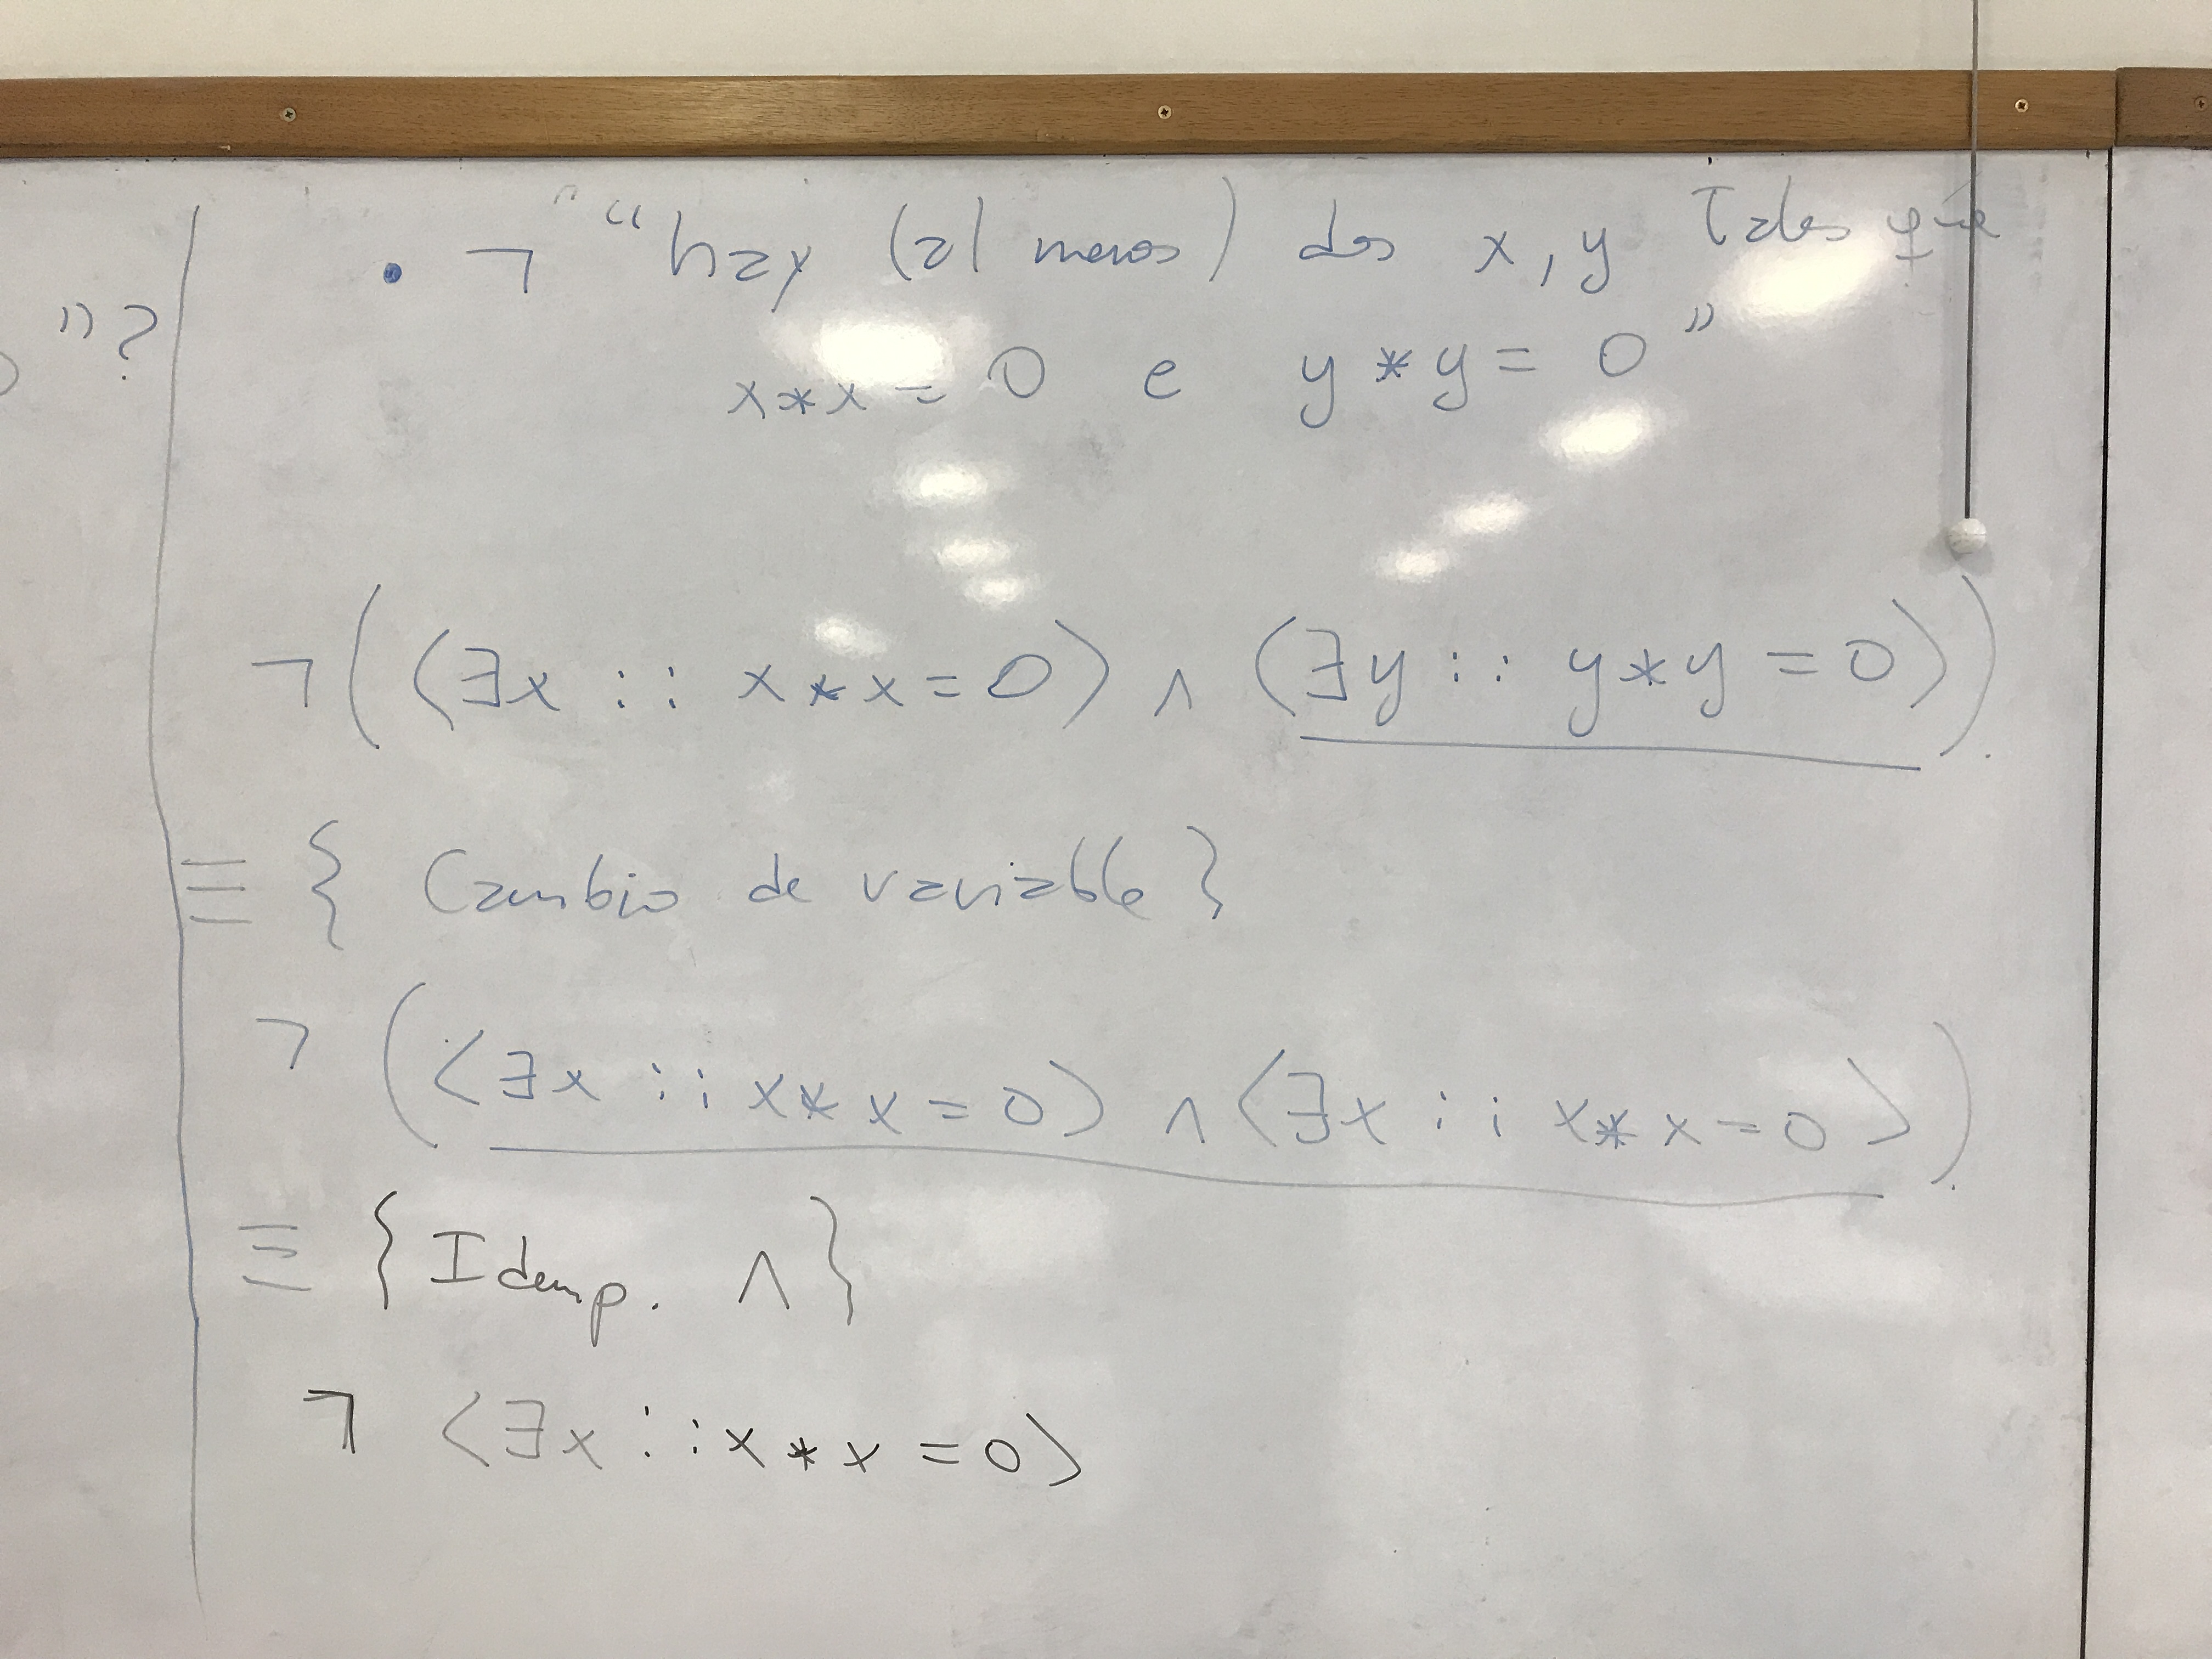 "?
• ¬ "hay (al menos) dos x, y tales que
x*x = 0 e y*y = 0"
¬(⟨∃x :: x*x=0⟩ ∧ ⟨∃y :: y*y=0⟩)
≡ { Cambio de variable }
¬ (⟨∃x :: x*x=0⟩ ∧ ⟨∃x :: x*x=0⟩)
≡ { Idemp. ∧ }
¬ ⟨∃x :: x*x=0⟩